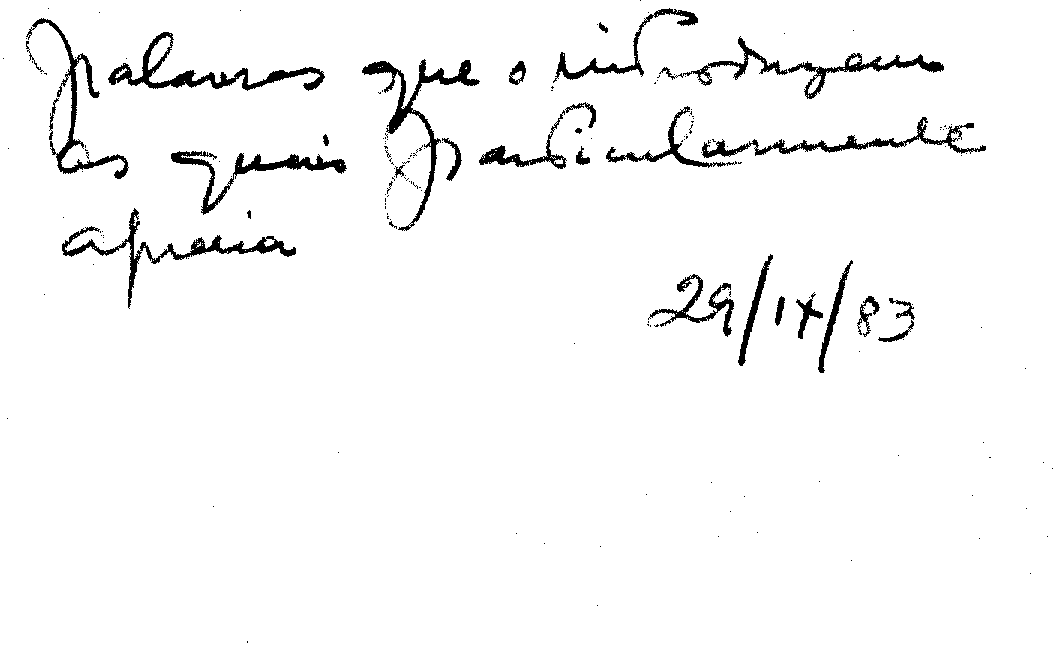 palavras que o introduzem
as quais particularmente
aprecia
29/IX/83